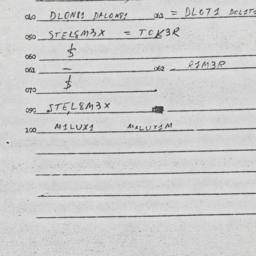 040 DLON81 DALON81 041 = DLOT1
050 STEL8M3X = TOK3R
060 $
061 — 062 R1M3R
070 $
090 STEL8M3X
100 M1LUX1 MALUX1M